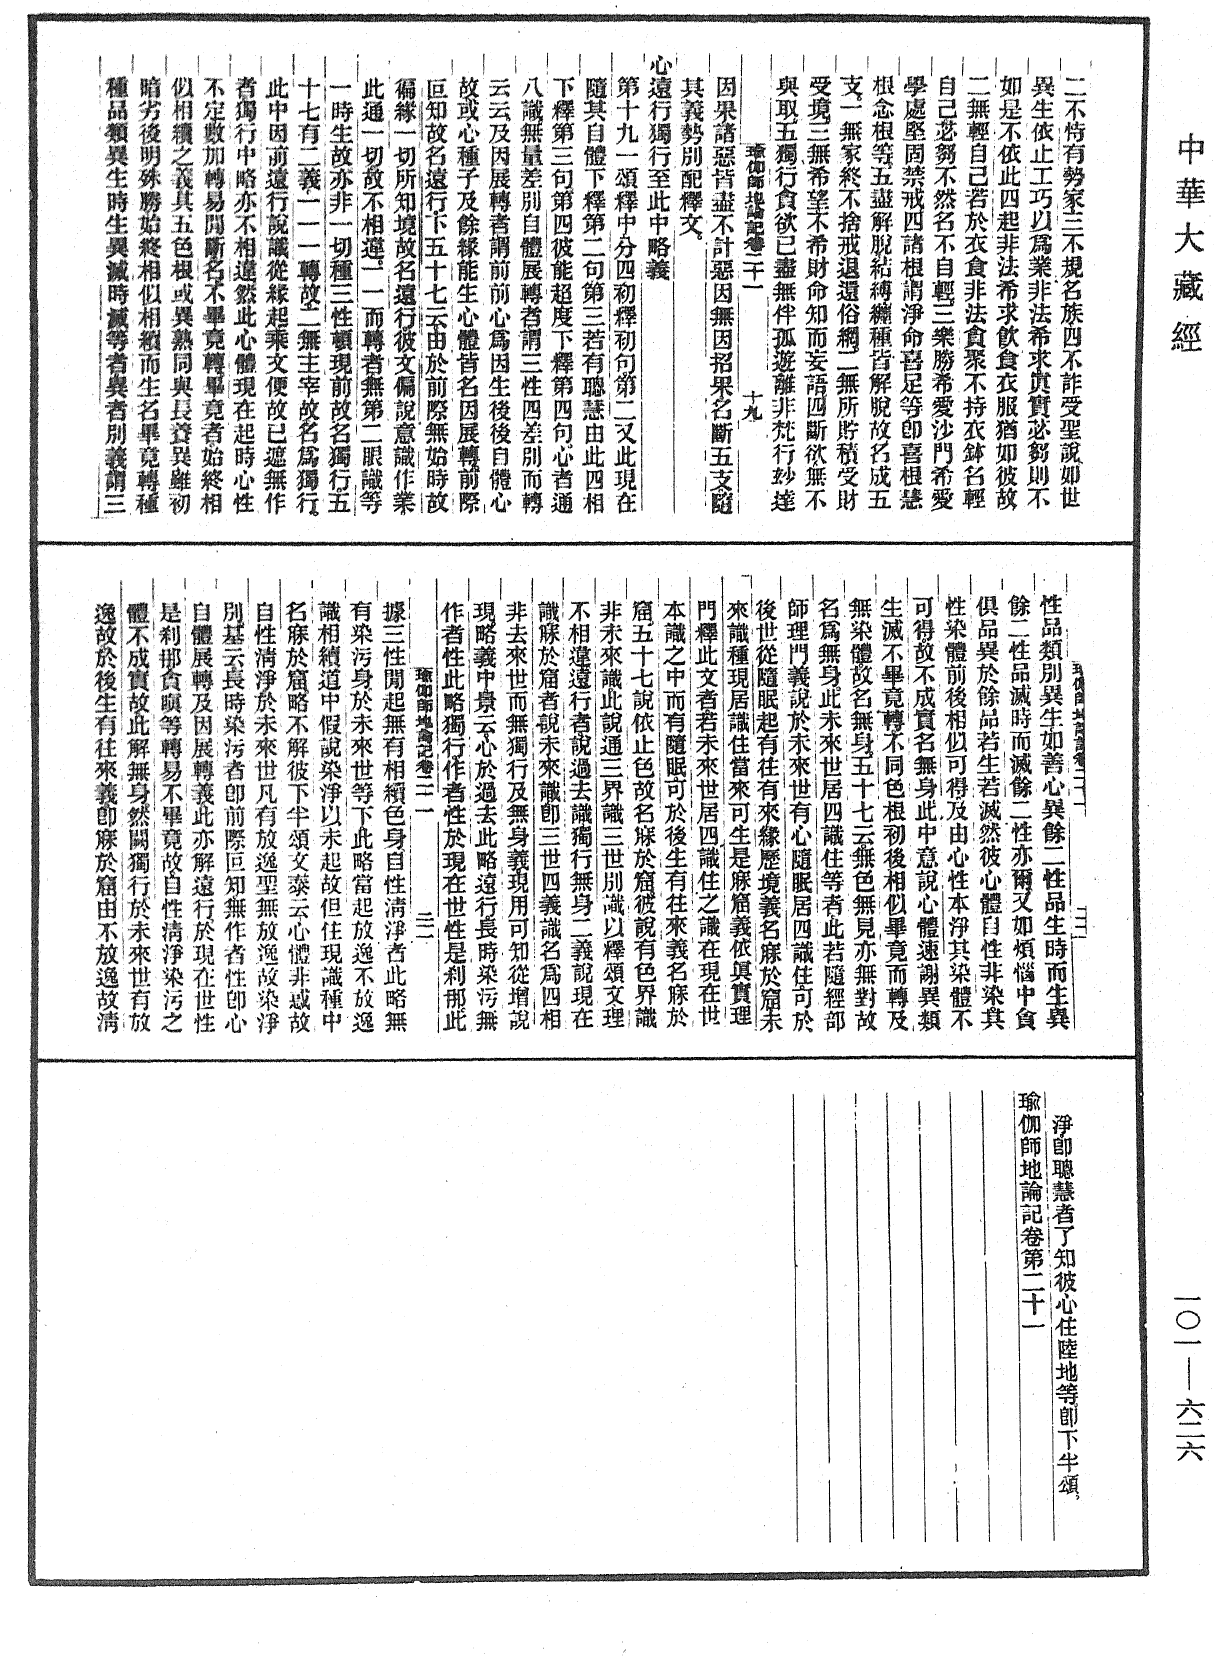 中華大藏經
二不恃有勢家三不規名族四不詐受聖說如世
異生依止工巧以爲業非法希求眞實苾芻則不
如是不依此四起非法希求飲食衣服猶如彼故
二無輕自己若於衣食非法貪聚不持衣鉢名輕
自己苾芻不然名不自輕三樂勝希愛沙門希愛
學處堅固禁戒四諸根謂淨命喜足等卽喜根慧
根念根等五盡解脫結縛纏種皆解脫故名成五
支一無家終不捨戒退還俗網二無所貯積受財
受境三無希望不希財命知而妄語四斷欲無不
與取五獨行貪欲已盡無伴孤遊離非梵行妙達
瑜伽師地論記卷二十一　十九
因果諸惡皆盡不計惡因無因招果名斷五支隨
其義勢別配釋文。
心遠行獨行至此中略義
第十九一頌釋中分四初釋初句第二又此現在
隨其自體下釋第二句第三若有聰慧由此四相
下釋第三句第四彼能超度下釋第四句心者通
八識無量差別自體展轉者謂三性四差別而轉
云云及因展轉者謂前前心爲因生後後自體心
故或心種子及餘緣能生心體皆名因展轉前際
叵知故名遠行下五十七云由於前際無始時故
徧緣一切所知境故名遠行彼文偏說意識作業
此通一切故不相違。一一而轉者無第二眼識等
一時生故亦非一切種三性頓現前故名獨行五
十七有二義一一一轉故二無主宰故名爲獨行。
此中因前遠行說識從緣起乘文便故已遮無作
者獨行中略亦不相違然此心體現在起時心性
不定數加轉易間斷名不畢竟轉畢竟者始終相
似相續之義其五色根或異熟同與長養異雖初
暗劣後明殊勝始終相似相續而生名畢竟轉種
種品類異生時生異滅時滅等者異者別義謂三
瑜伽師地論記卷二十一　二十
性品類別異生如善心異餘二性品生時而生異
餘二性品滅時而滅餘二性亦爾又如煩惱中貪
俱品異於餘品若生若滅然彼心體自性非染其
性染體前後相似可得及由心性本淨其染體不
可得故不成實名無身此中意說心體速謝異類
生滅不畢竟轉不同色根初後相似畢竟而轉及
無染體故名無身五十七云無色無見亦無對故
名爲無身此未來世居四識住等者此若隨經部
師理門義說於未來世有心隨眠居四識住可於
後世從隨眠起有往有來緣歷境義名寐於窟未
來識種現居識住當來可生是寐窟義依眞實理
門釋此文者若未來世居四識住之識在現在世
本識之中而有隨眠可於後生有往來義名寐於
窟五十七說依止色故名寐於窟彼說有色界識
非未來識此說通三界識三世別識以釋頌文理
不相違遠行者說過去識獨行無身二義說現在
識寐於窟者說未來識卽三世四義識名爲四相
非去來世而無獨行及無身義現用可知從增說
現略義中景云心於過去此略遠行長時染污無
作者性此略獨行作者性於現在世性是刹那此
瑜伽師地論記卷二十一　二一
據三性間起無有相續色身自性淸淨者此略無
有染污身於未來世等下此略當起放逸不放逸
識相續道中假說染淨以未起故但住現識種中
名寐於窟略不解彼下半頌文泰云心體非惑故
自性淸淨於未來世凡有放逸聖無放逸故染淨
別基云長時染污者卽前際叵知無作者性卽心
自體展轉及因展轉義此亦解遠行於現在世性
是刹那貪瞋等轉易不畢竟故自性淸淨染污之
體不成實故此解無身然闕獨行於未來世有放
逸故於後生有往來義卽寐於窟由不放逸故淸
淨卽聰慧者了知彼心住陸地等卽下半頌。
瑜伽師地論記卷第二十一
一〇一—六二六